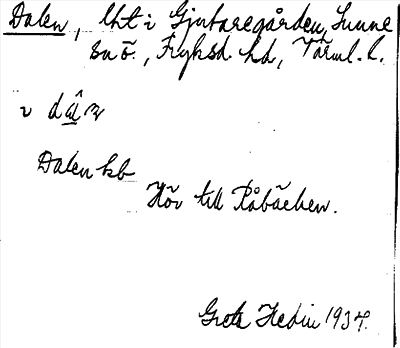 Dalen, lht i Gjutaregården, Sunne
sn ö., Fryksd. hd, Värml. l.
i daln
Dalen kb
Hör till Råbäcken.
Greta Hedin 1934.